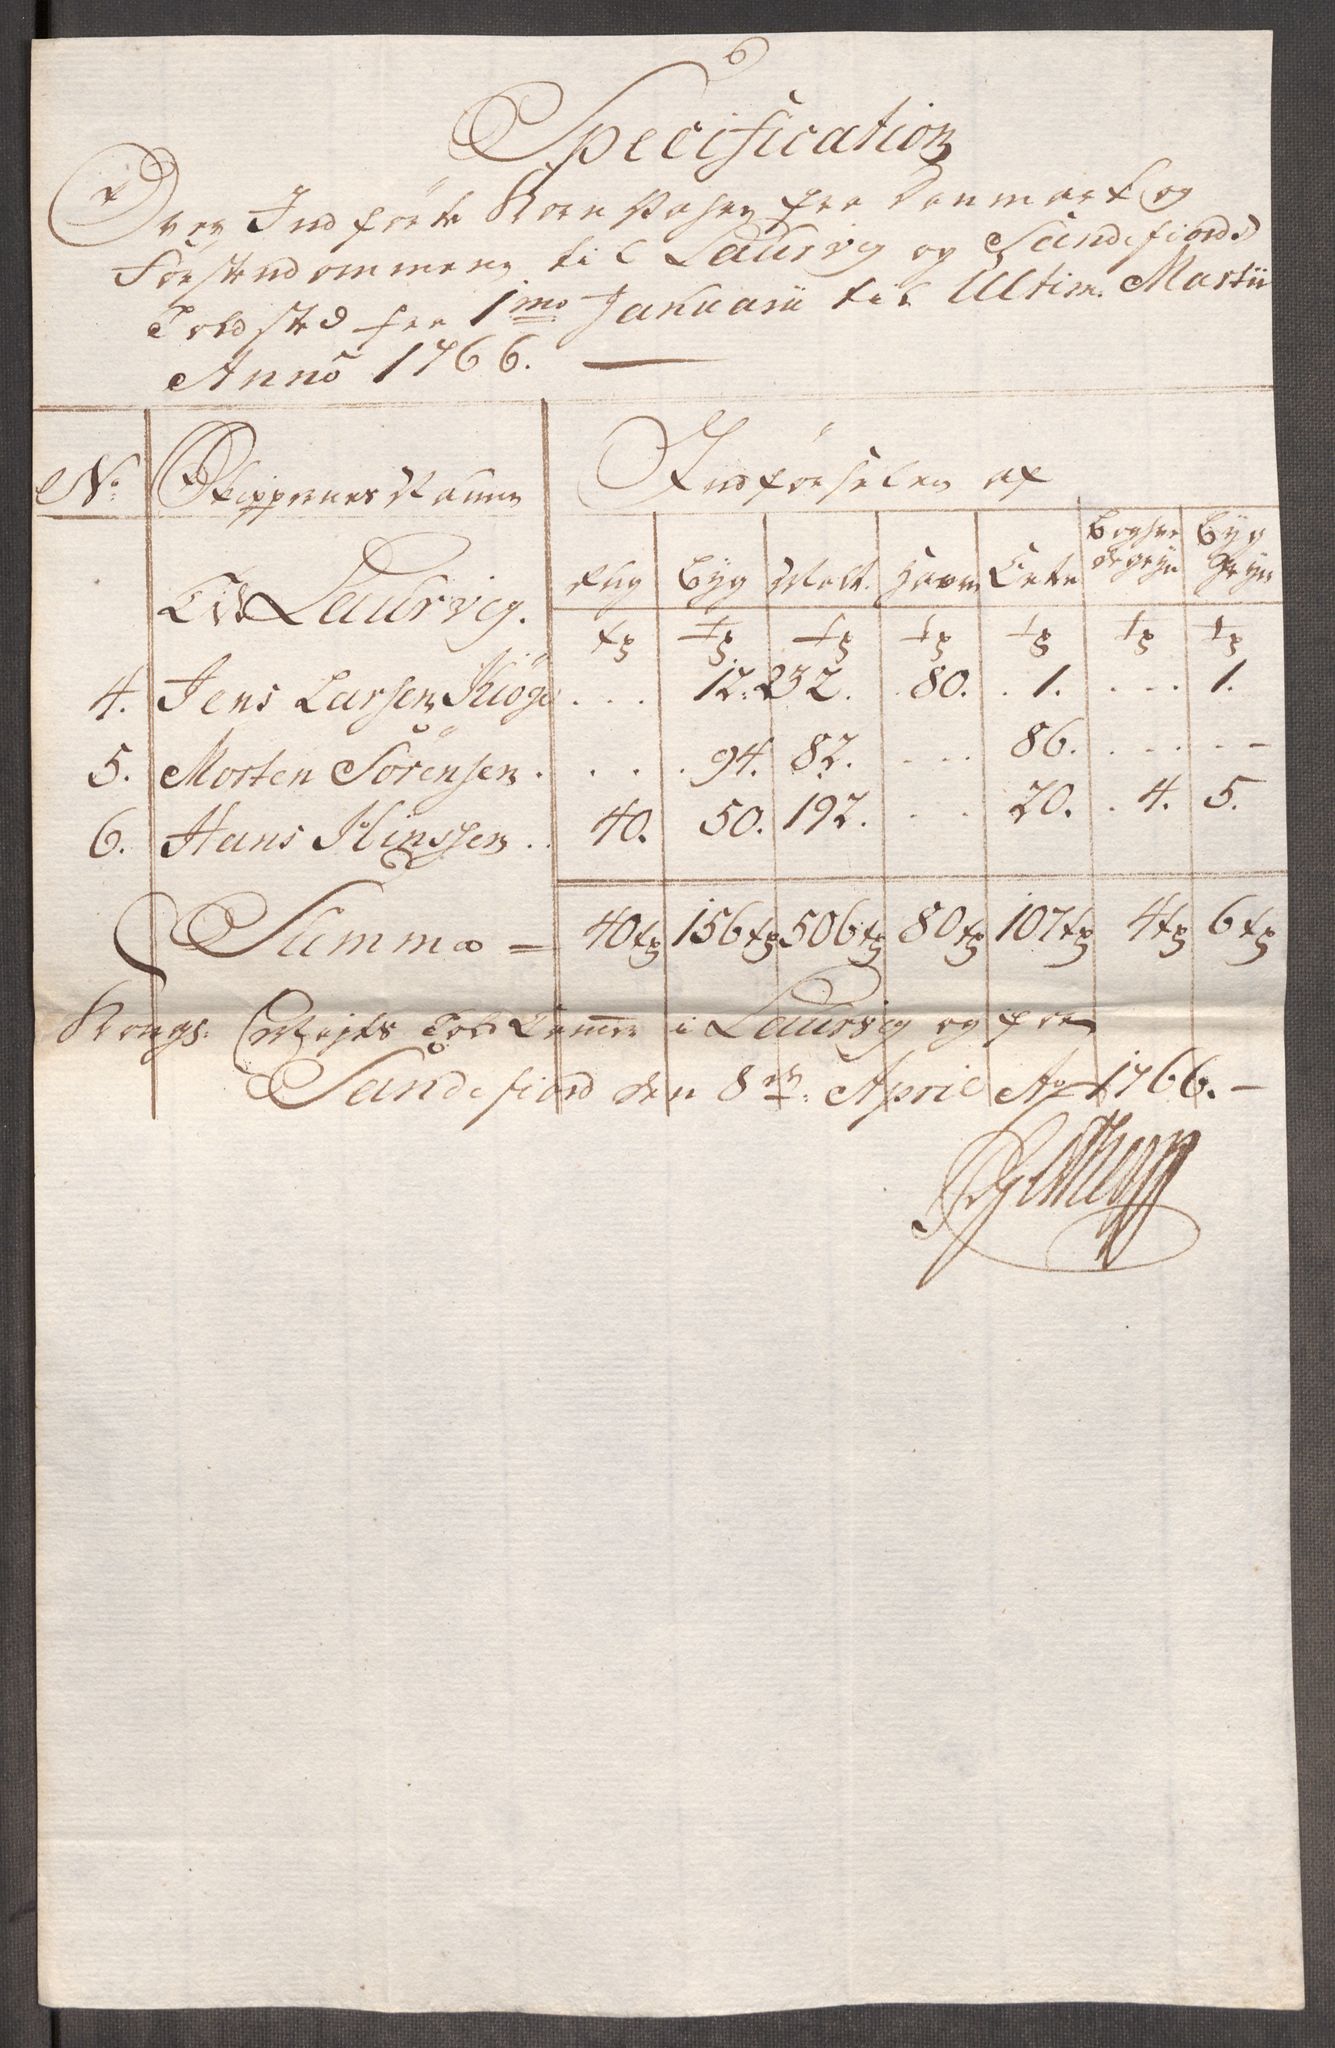 Specification
Over Indförte Korn Vahrer fra Danmark og
Förstendommene til Laurvig og Sandefiords
Toldsted fra 1mo Januarii til Ultim. Martii
Anno 1766.
No. Skippernes Nafne Indförselen af
Rug Byg Malt. Havre Erter Boghve de gryn Byg Gryn
Til Laurvig.
tr tr tr tr tr tr tr
4. Jens Larsen Kiöge . . . 12. 232. . 80. . 1. . . . 1.
5. Morten Sörensen . . . . 94. 82. . . . 86. . . . . . –
6. Hans Hinssen . . 40. 50. 192. . . 20. . 4. 5.
Summa = 40 tr 156 tr 506 tr 80 tr 107 tr 4 tr 6 tr
Kongs: Mayts Told Kammer i Laurvig og for
Sandefiord den 8de April Ao 1766. –